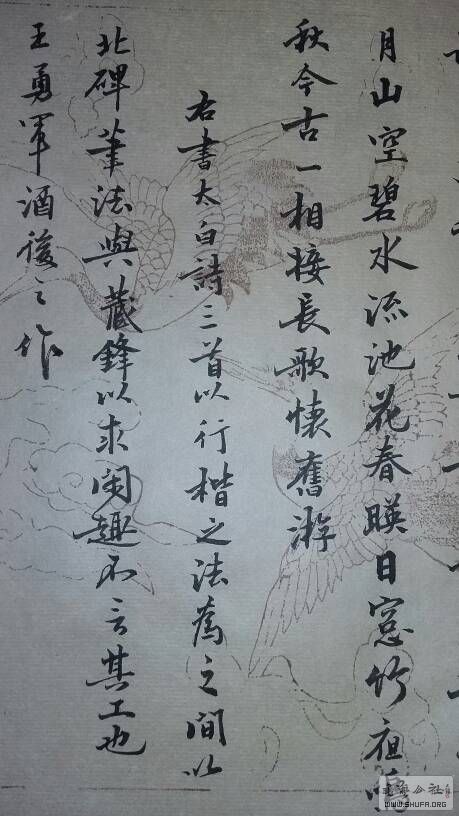 月山空碧水流池花春暎日窓竹夜鳴
秋今古一相接長歌懷舊游
右書太白詩三首以行楷之法為之間以
北碑筆法與藏鋒以求閑趣不言其工也
王勇軍酒後之作
WWW.SHUFA.ORG